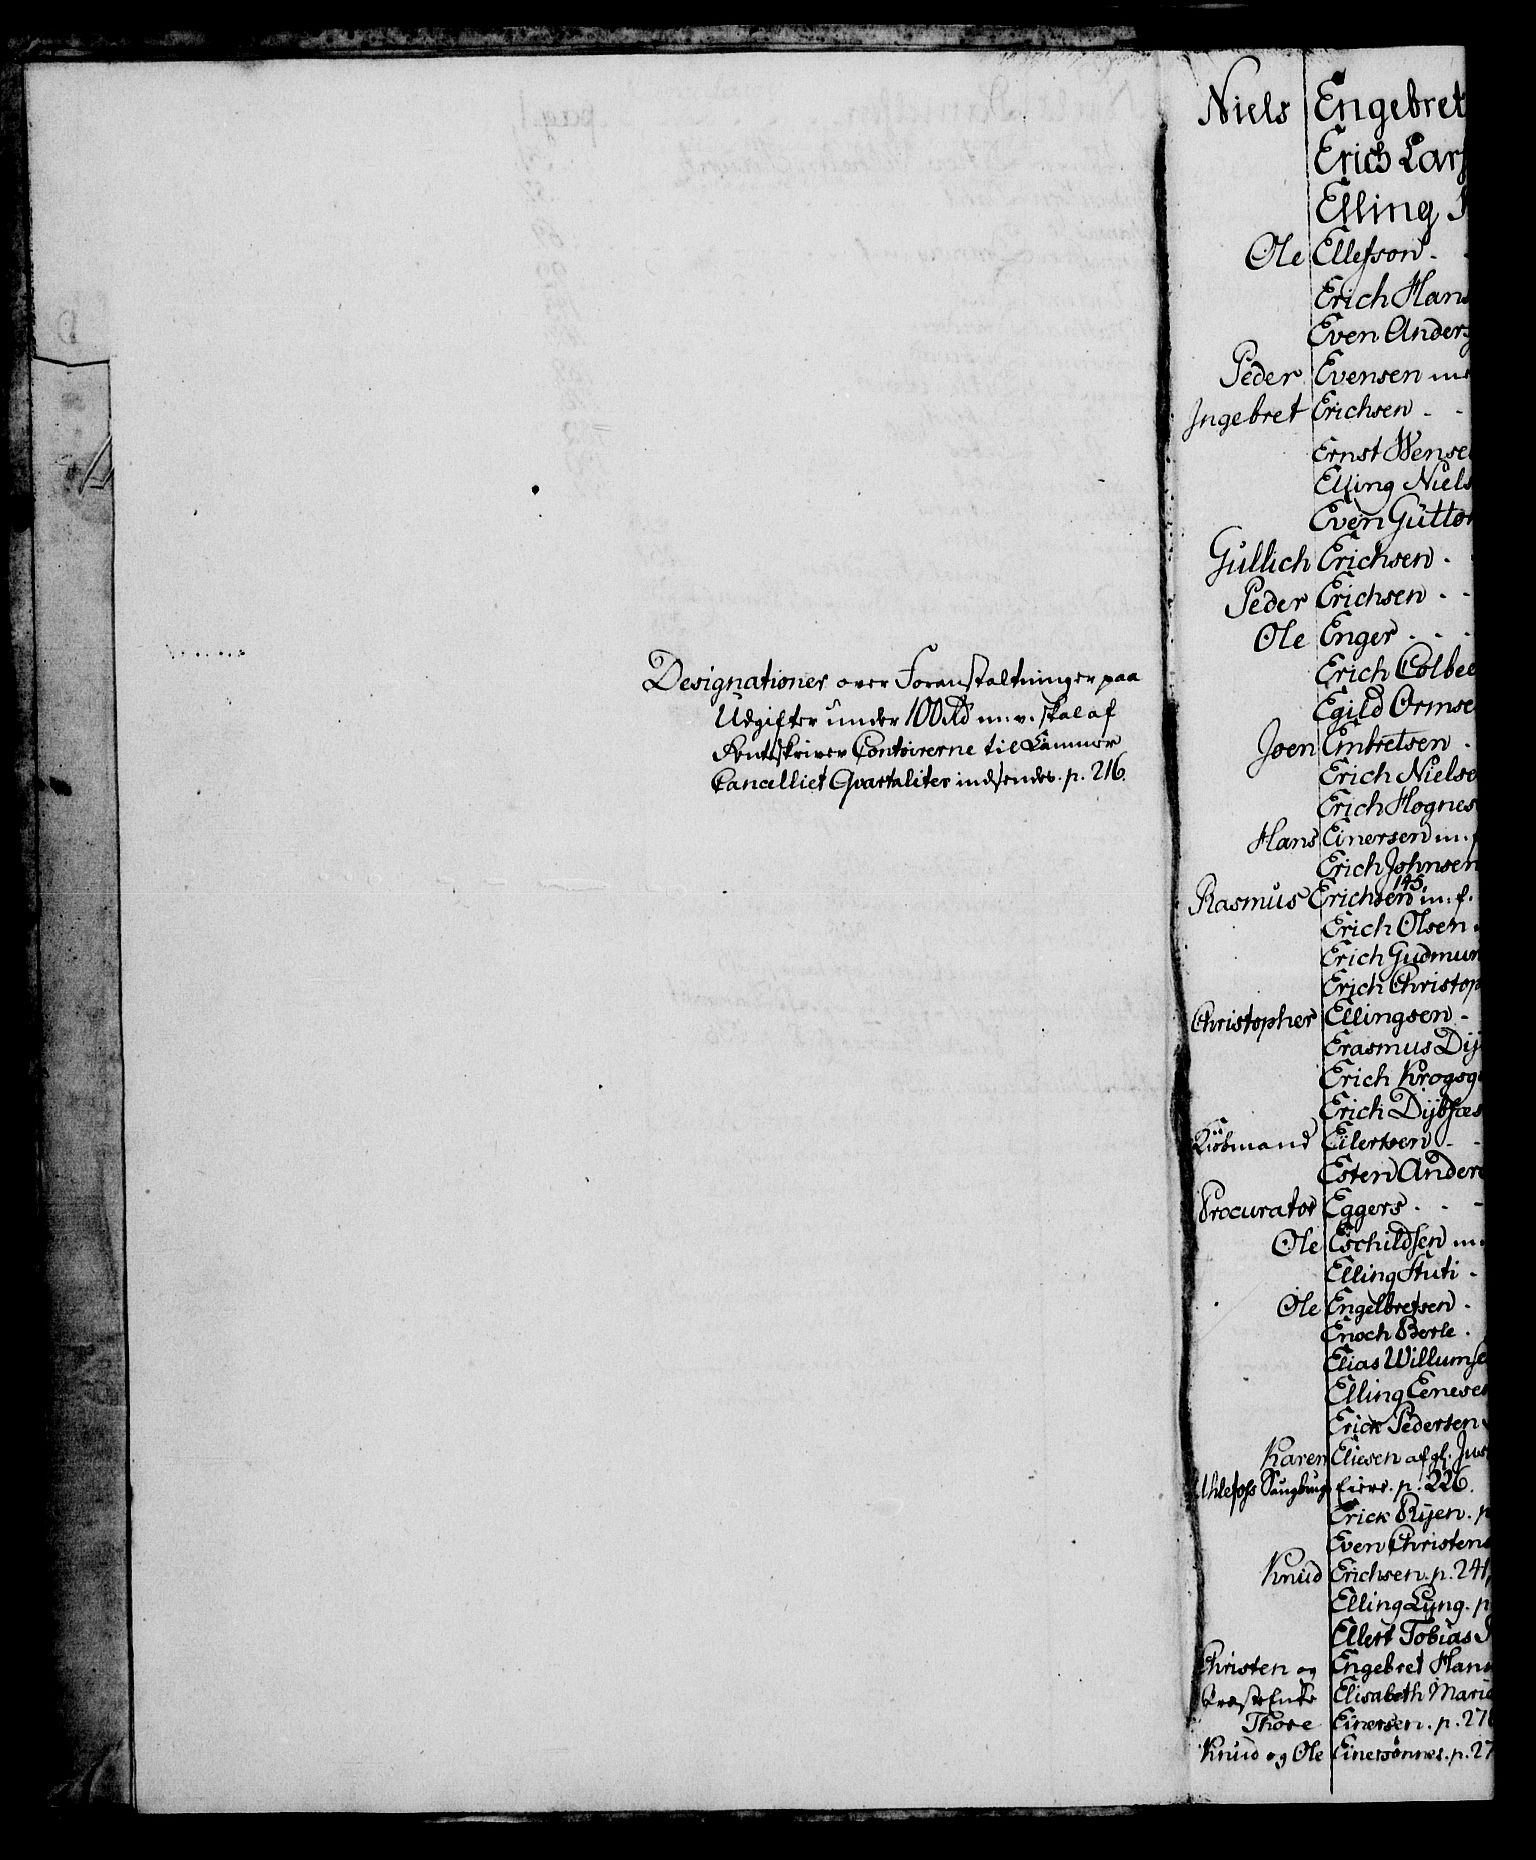 Designationer over Foranstaltninger paa
Udgifter under 100 Rd m. v. skal af
Renteskriver Contoirerne til Kammer
Cancelliet Qvartaliter indsendes. p. 216.
Niels Engebret
Erich Lars
Elling
Ole Ellefson - -
Erich Hans
Even Anders
Peder Evensen m
Ingebret Erichsen - -
Ernst Wense
Elling Niels
Even Guttor
Gullich Erichsen - -
Peder Erichsen - -
Ole Enger - - -
Erich Colbee
Egild Ormse
Joen Embretsen -
Erich Nielse
Erich Hognes
Hans Einersen m. f
Erich Johnsen
Rasmus Erichsen m. f. 145
Erich Olsen
Erich Gudmun
Erich Christop
Christopher Ellingsen -
Erasmus Dy
Erich Krogsg
Erich Dybfæs
Kiöbmand Eilertsen - -
Esten Anders
Procurator Eggers - - -
Ole Eschildsen m.
Elling Stuti -
Ole Engelbretsen -
Enoch Borle .
Elias Willumse
Elling Eenese
Erick Pedersen
Karen Eliesen afgl. Jus
Uhlefoss Saugbrugs Eiere. p. 226.
Erick Ryen. p
Even Christens
Knud Erichsen. p. 241,
Elling Lyng. p
Ellert Tobias
Christen og Engebret Hans
Præste Enke Elisabeth Maria
Thore Einersen. p. 27
Knud og Ole Einersönner. p. 27